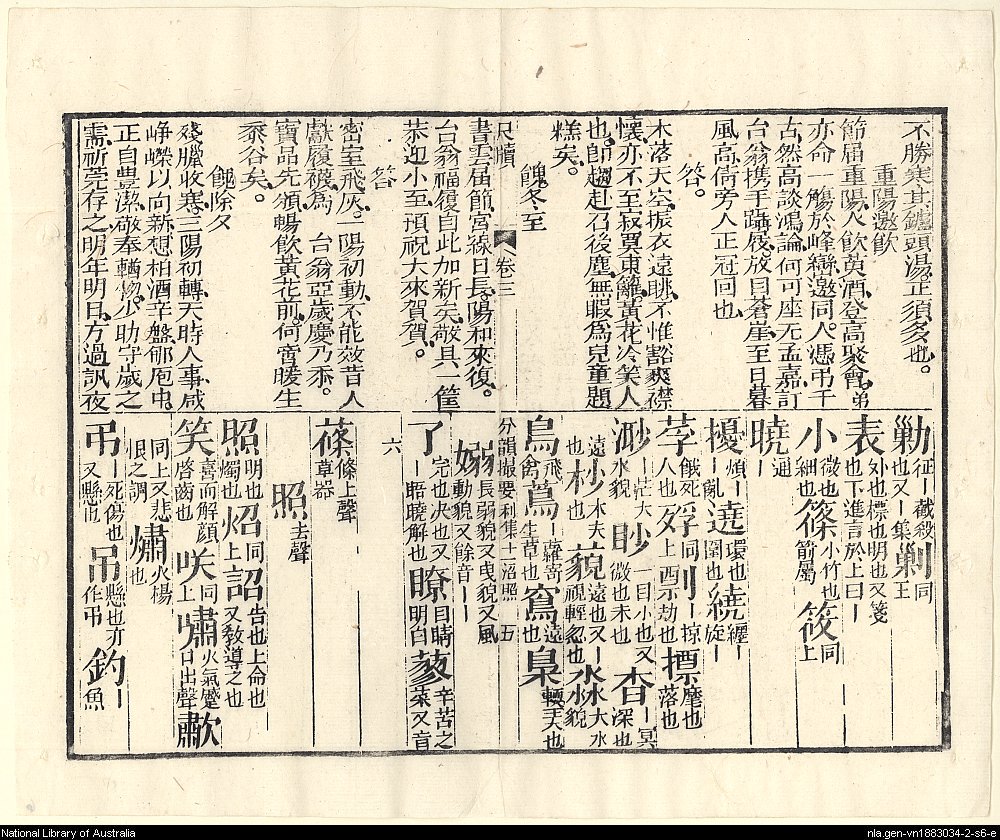 不勝寒其鑪頭湯正須多也。
重陽邀飲
節屆重陽人飲萸酒登高聚會弟
亦命一觴於峰巒邀同人憑弔千
古然高談鴻論何可座无孟嘉訂
台翁携手躡屐放目蒼崖至日暮
風高倩旁人正冠回也
答。
木落天空振衣遠眺不惟豁爽襟
懷亦不至寂寞東籬黃花冷笑人
也即趨赴召後塵無暇為兒童題
糕矣。
餽冬至
尺牘
卷三
書雲屆節宮線日長陽和來復。
台翁福復自此加新矣敬具一筐
恭迎小至預祝大來賀賀。
答
密室飛灰一陽初動不能效昔人
獻履襪為 台翁亞歲慶乃忝
寶品先頒暢飲黃花前何啻暖生
黍谷矣。
餽除夕
殘臘收寒三陽初轉天時人事咸
崢嶸以向新想柏酒辛盤郇厄屯
正自豊潔敬奉輶物少助守歲之
需祈莞存之明年明日方過訊夜
勦征—截殺也又—集 剿同王
表外也標也明也又箋也下進言於上曰—
小微也細也 篠小竹也箭屬 筱同上
曉—通
擾煩—亂— 遶環也圍也 繞纏—旋—
莩餓死人也 殍同上 剽—掠票劫也 摽麾也落也
渺—茫大水貌 眇一目小也又微也末也 杳—冥深也
遠也 杪木末也 藐遠也又—藐視輕忽也 淼—水大水貌
鳥飛禽 蔦—蘿蒿生草也 窵遠也 梟
分韻撮要利集十一沼照 五
嫋長弱貌又曳貌又風動貌又餘音——
了完也决也又—晤曉解也 瞭目睛明白 蔆辛苦之菜又音
六
蓧條上聲草器
照去聲
照明也燭也 炤同上 詔告也上命也又教導之也
笑喜而解顏啓齒也 咲同上 嘯火氣蹙口出聲 歗
同上又悲恨之謂 熽火楊也
弔—死傷也又懸也 吊懸也亦作弔 釣—魚
National Library of Australia
nla.gen-vn1883034-2-s6-e